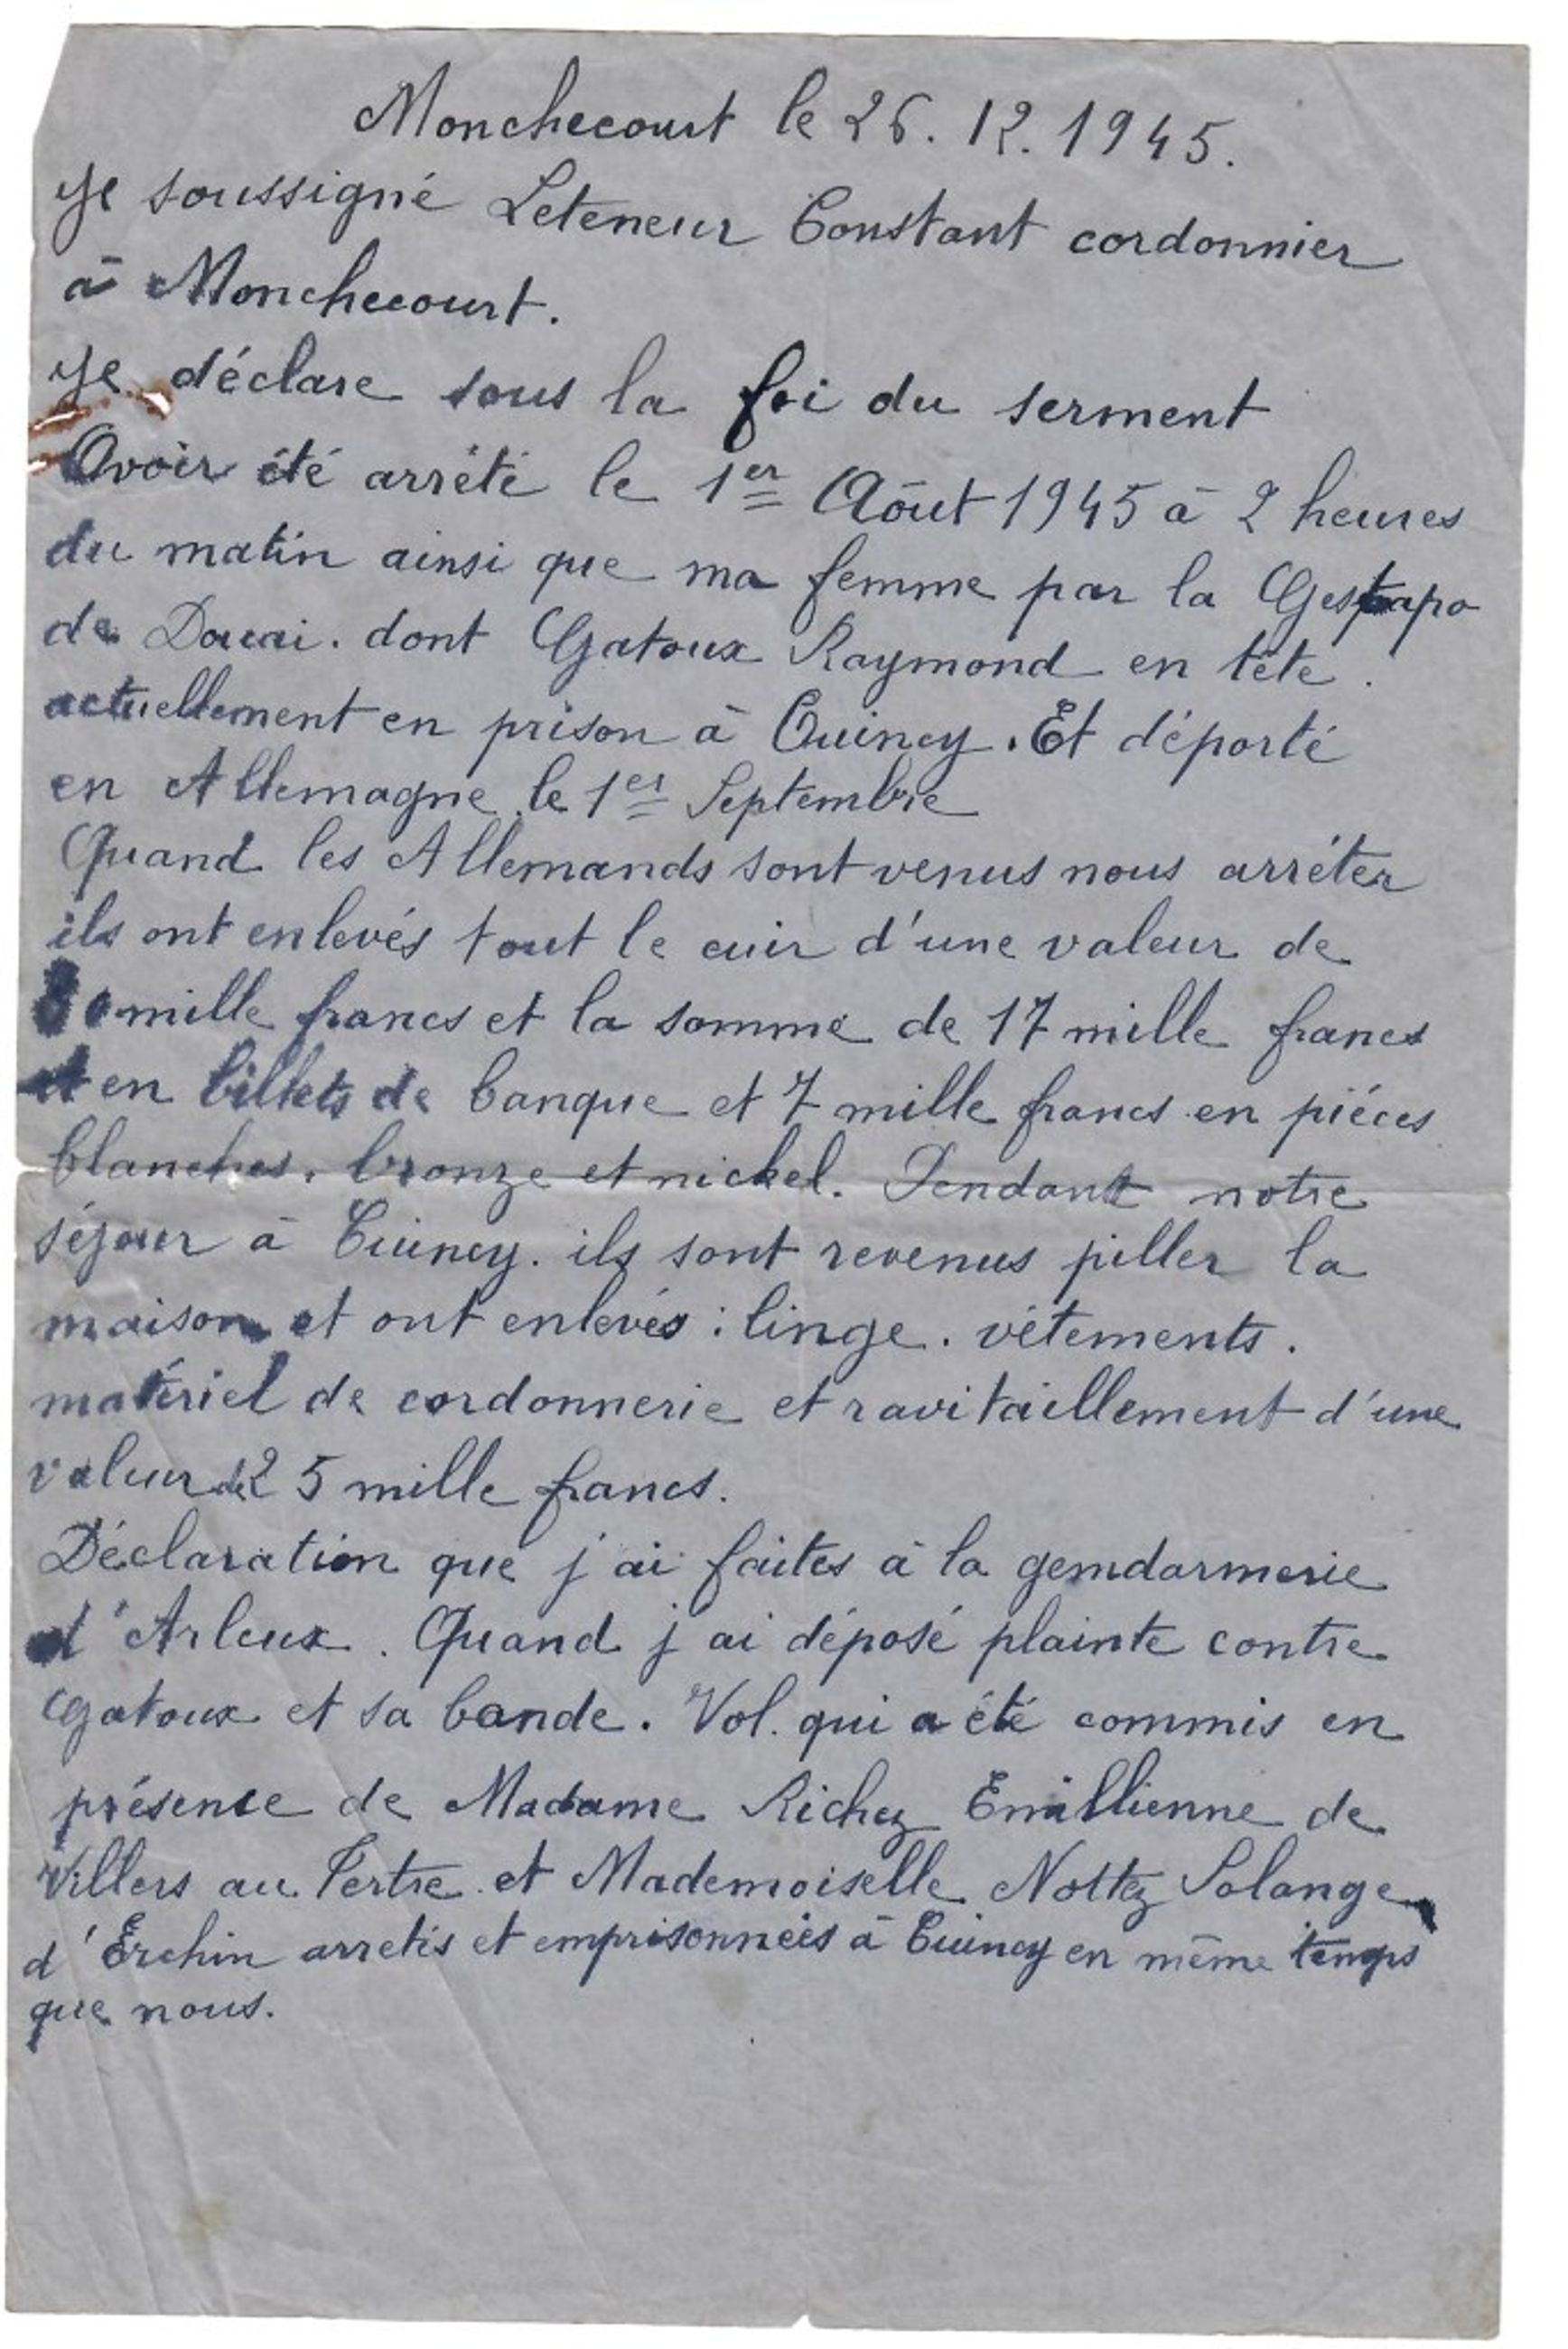 Monchecourt le 26.12.1945.
Je soussigné Leteneur Constant cordonnier
à Monchecourt.
Je déclare sous la foi du serment
Avoir été arrété le 1er Aôut 1945 à 2 heures
du matin ainsi que ma femme par la Gestapo
de Douai. dont Gatoux Raymond en tête.
actuellement en prison à Cuincy. Et déporté
en Allemagne le 1er Septembre
Quand les Allemands sont venus nous arréter
ils ont enlevés tout le cuir d'une valeur de
mille francs et la somme de 17 mille francs
et en billets de banque et 7 mille francs en piéces
blanches. bronze et nickel. Pendant notre
séjour à Cuincy. ils sont revenus piller la
maison et ont enlevés : linge. vêtements.
matériel de cordonnerie et ravitaillement d'une
valeur de 25 mille francs.
Déclaration que j'ai faites à la gemdarmerie
d'Arleux. Quand j ai déposé plainte contre
Gatoux et sa bande. Vol. qui a été commis en
présence de Madame Richez Emillienne de
Villers au Tertre et Mademoiselle Nottez Solange
d'Erchin arretés et emprisonnées à Cuincy en même temps
que nous.